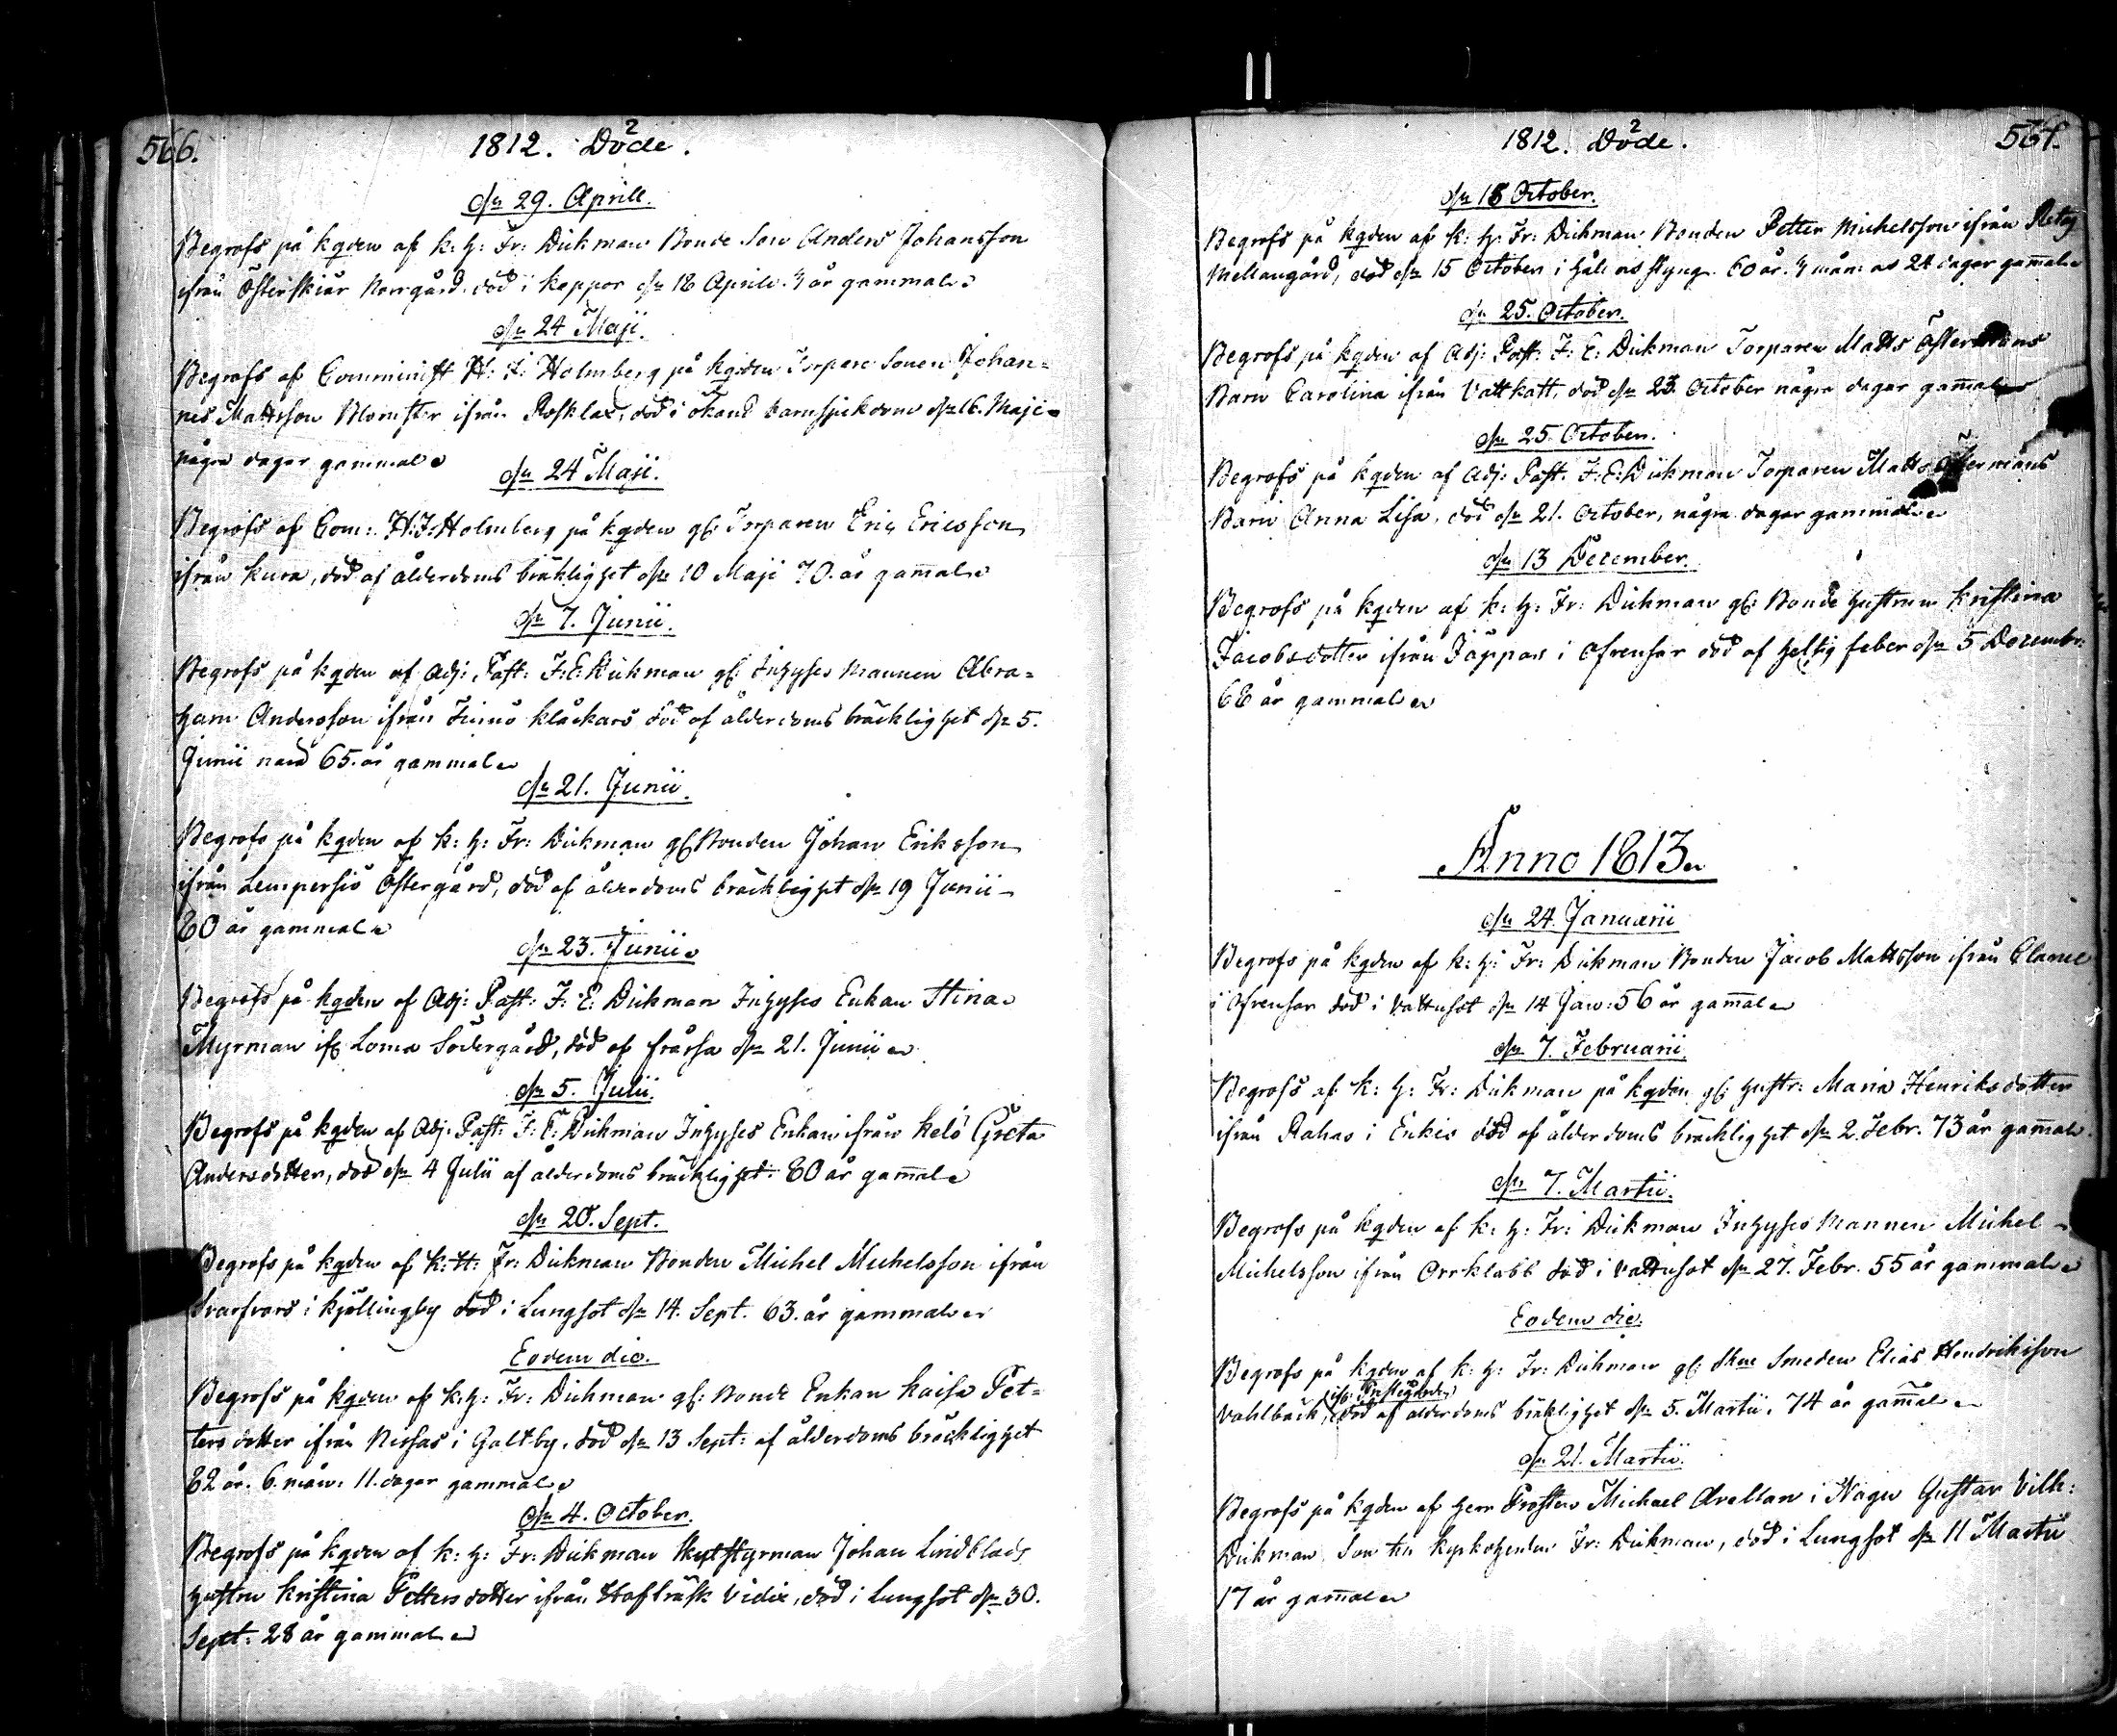 566.
1812. Döde.
dn 29. Aprill.
Begrofs på kgden af k: h: Fr: Dickman Bonde Son Anders Johansson
ifrån Österskiär Norrgård. död i koppor dn 18 Aprill. 4 år gammal
dn 24 Maji.
Begrofs af Comminist H: J: Holmberg på kgden Torpare Sonen Johan=
nes Mattsson Blomster ifrån Rosklax, död i okänd barnsjukdom dn 16. Maji
några dagar gammal
dn 24 Maji.
Begrofs af Com: H: J: Holmberg på kgden gl: Torparen Eric Ericsson
ifrån Kura, död af ålderdoms bräklighet dn 10 Maji 70. år gamal
dn 7. Junii.
Begrofs på kgden af Adj: Past: F: E: Dickman gl: Inhyses Mannen Abra=
ham Andersson ifrån Fiimö Klåckars död af ålderdoms bräcklighet dn 5.
Junii 65. år gammal
dn 21. Junii.
Begrofs på kgden af k: h: Fr: Dickman gl Bonden Johan Eriksson
ifrån Lempersiö Östergård, död af ålderdoms bräcklighet dn 19 Junii
80 år gammal
dn 23. Junii
Begrofs på kgden af Adj: Past: F: E: Dickman Inhyses Enkan Stina
Myrman ifr Loma Södergård, död af frässa dn 21. Junii
dn 5. Julii.
Begrofs på kgden af Adj: Past: F: E: Dickman Inhyses Enkan ifrån Kelö Greta
Andersdotter, död dn 4 Julii af ålderdoms bräcklighet. 80 år gamal
dn 20. Sept.
Begrofs på kgden af K: H: Fr: Dickman Bonden Michel Michelsson ifrån
Svarfvars i Kjällingby död i Lungsot dn 14. Sept. 63. år gammal
Eodem die.
Begrofs på kgden af k: h: Fr: Dickman gl: Bonde Enkan Kaisa Pet=
tersdotter ifrån Nissas i Galtby. död dn 13 Sept: af ålderdoms bräcklighet
82 år. 6. mån: 11. dagar gammal
dn 4. October.
Begrofs på kgden af k: h: Fr: Dickman Skutstyrman Johan Lindblads
hustru Kristina Pettersdotter ifrån Hafträsk Vidix, död i Lungsot dn 30.
Sept: 28 år gammal
1812. Döde.
567.
dn 18 October.
Begrofs på kgden af k: h: Fr: Dickman Bonden Petter Michelsson ifrån
Mellangård, död dn 15 October i håll os styng. 60 år. 4 mån: os 24 dagar gamal
dn 25. October.
Begrofs på kgden af Adj: Past: F: E: Dickman Torparen Matts Östermans
Barn Carolina ifrån Vattkatt, död dn 23. October några dagar gamal
dn 25 October.
Begrofs på kgden af Adj: Past. F: E: Dickman Torparen Matts Östermans
Barn Anna Lisa, död dn 21. October, några dagar gammal
dn 13 December.
Begrofs på kgden af k: h: Fr: Dickman gl: Bonde hustrun Kristina
Jacobsdotter ifrån Jäppas i Ofvensor död af heftig feber dn 5 Decembr:
68 år gammal
Anno 1813
dn 24. Januarii
Begrofs på kgden af k: h: Fr: Dickman Bonden Jacob Mattsson ifrån
i Ofvensor död i Vattusot dn 14 Jan: 56 år gamal
dn 7. Februarii.
Begrofs af k: h: Fr: Dickman på kgden gl: hustr: Maria Henriksdotter
ifrån Rahas i Enkis död af ålderdoms bräcklighet dn 2. Febr. 73 år gamal.
dn 7. Martii.
Begrofs på kgden af k: h: Fr: Dickman Inhyses Mannen Michel
Michelsson ifrån Orrklobb död i vattusot dn 27. Febr. 55 år gammal
Eodem die.
Begrofs på kgden af k: h: Fr: Dickman gl: Smeden Elias Hendriksson
ifr: Prestgården
Vahlbäck, död af ålderdoms bräklighet dn 5. Martii. 74 år gamal
dn 21. Martii.
Begrofs på kgden af herr Prosten Michael Avellan i Nagu Gustav Vilh:
Dickman Son till Kyrkoherden Fr: Dickman, död i Lungsot dn 11 Martii
17 år gamal